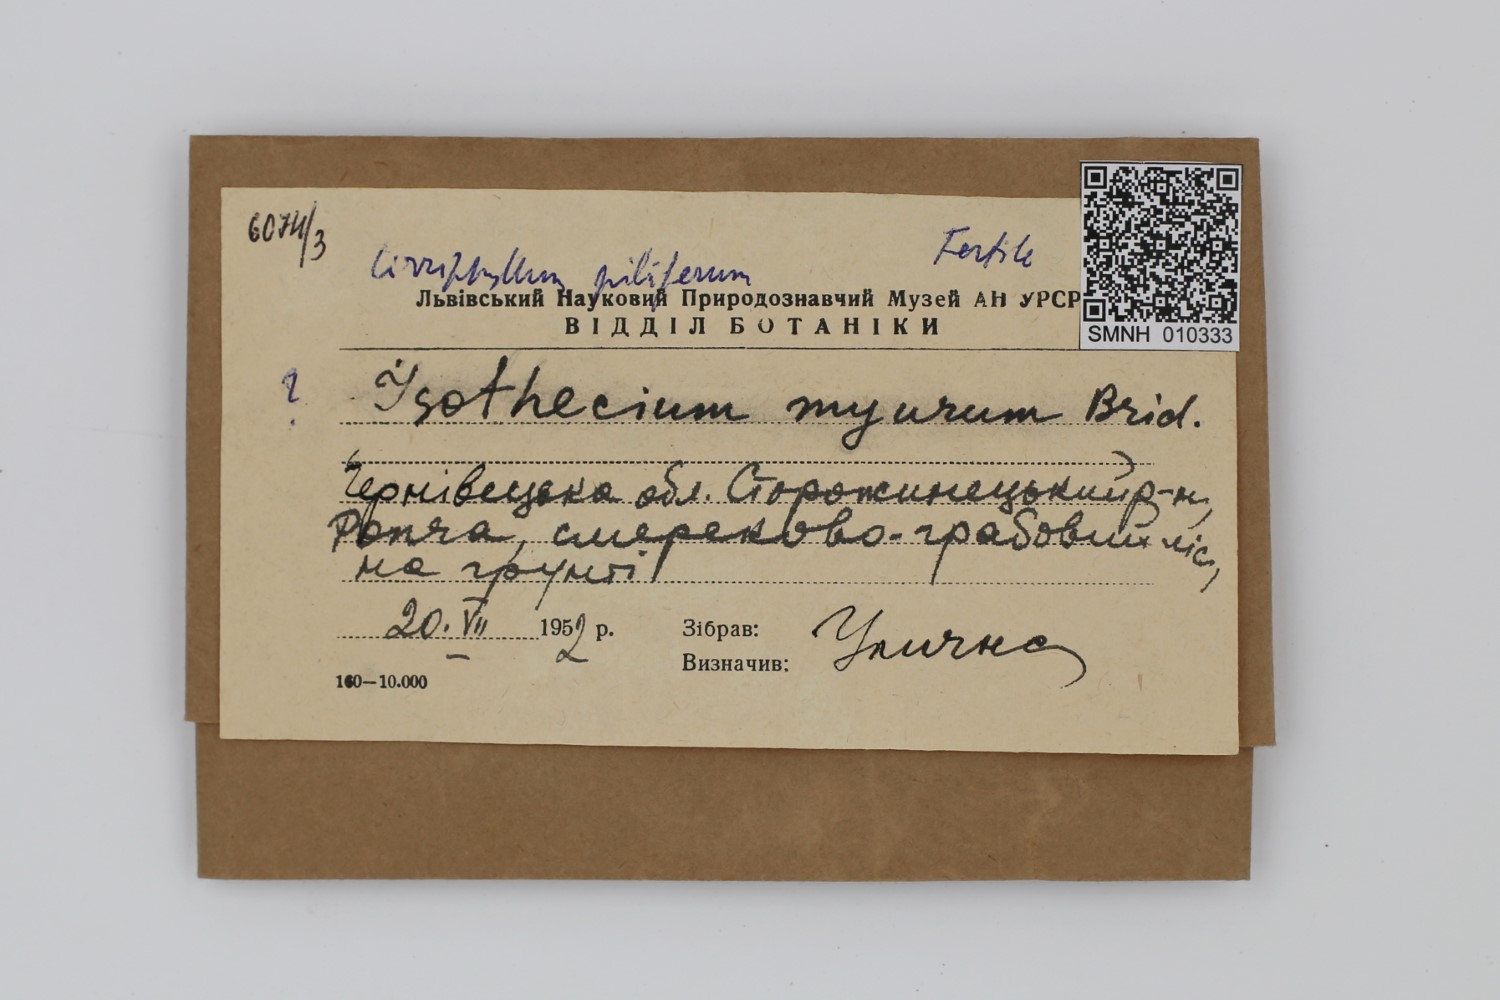 6074/3
Cirriphyllum piliferum Fertile
Львівський Науковий Природознавчий Музей АН УРСР
ВІДДІЛ БОТАНІКИ
SMNH 010333
? Isothecium myurum Brid.
Чернівецька обл. Сторожинецький р-н,
Ропча, смереково-грабовий ліс,
на ґрунті
20. VII 1952 р. Зібрав: Улична
Визначив:
160—10.000